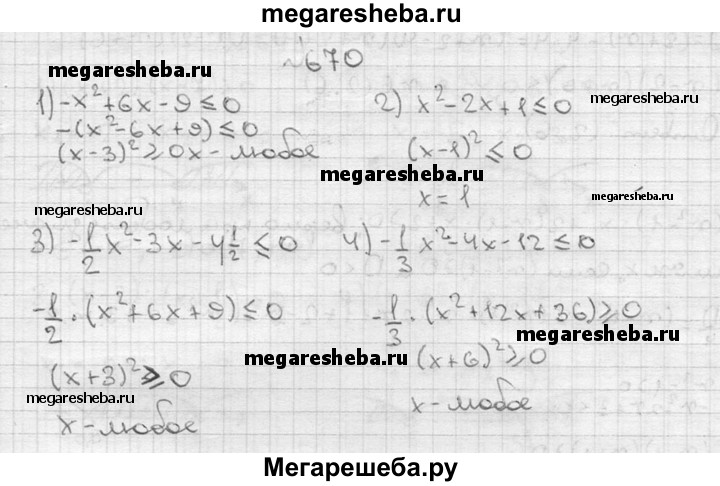 megaresheba.ru
№670
megaresheba.ru
1) -x²+6x-9≤0
-(x²-6x+9)≤0
(x-3)²≥0 x - любое
2) x²-2x+1≤0
megaresheba.ru
(x-1)²≤0
megaresheba.ru
x=1
megaresheba.ru
megaresheba.ru
3) -1/2x²-3x-4 1/2≤0
-1/2·(x²+6x+9)≤0
(x+3)²≥0
megaresheba.ru
x-любое
4) -1/3x²-4x-12≤0
-1/3·(x²+12x+36)≥0
megaresheba.ru
megaresheba.ru
(x+6)²≥0
x-любое
Мегарешеба.ру